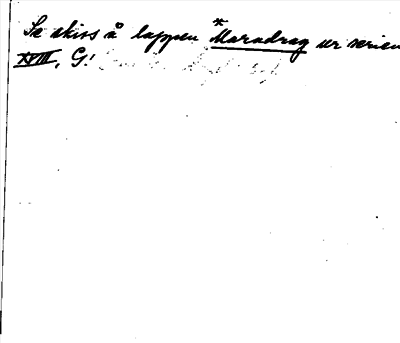 Se skiss å lappen *Maradrag ur serien
XVIII, G!